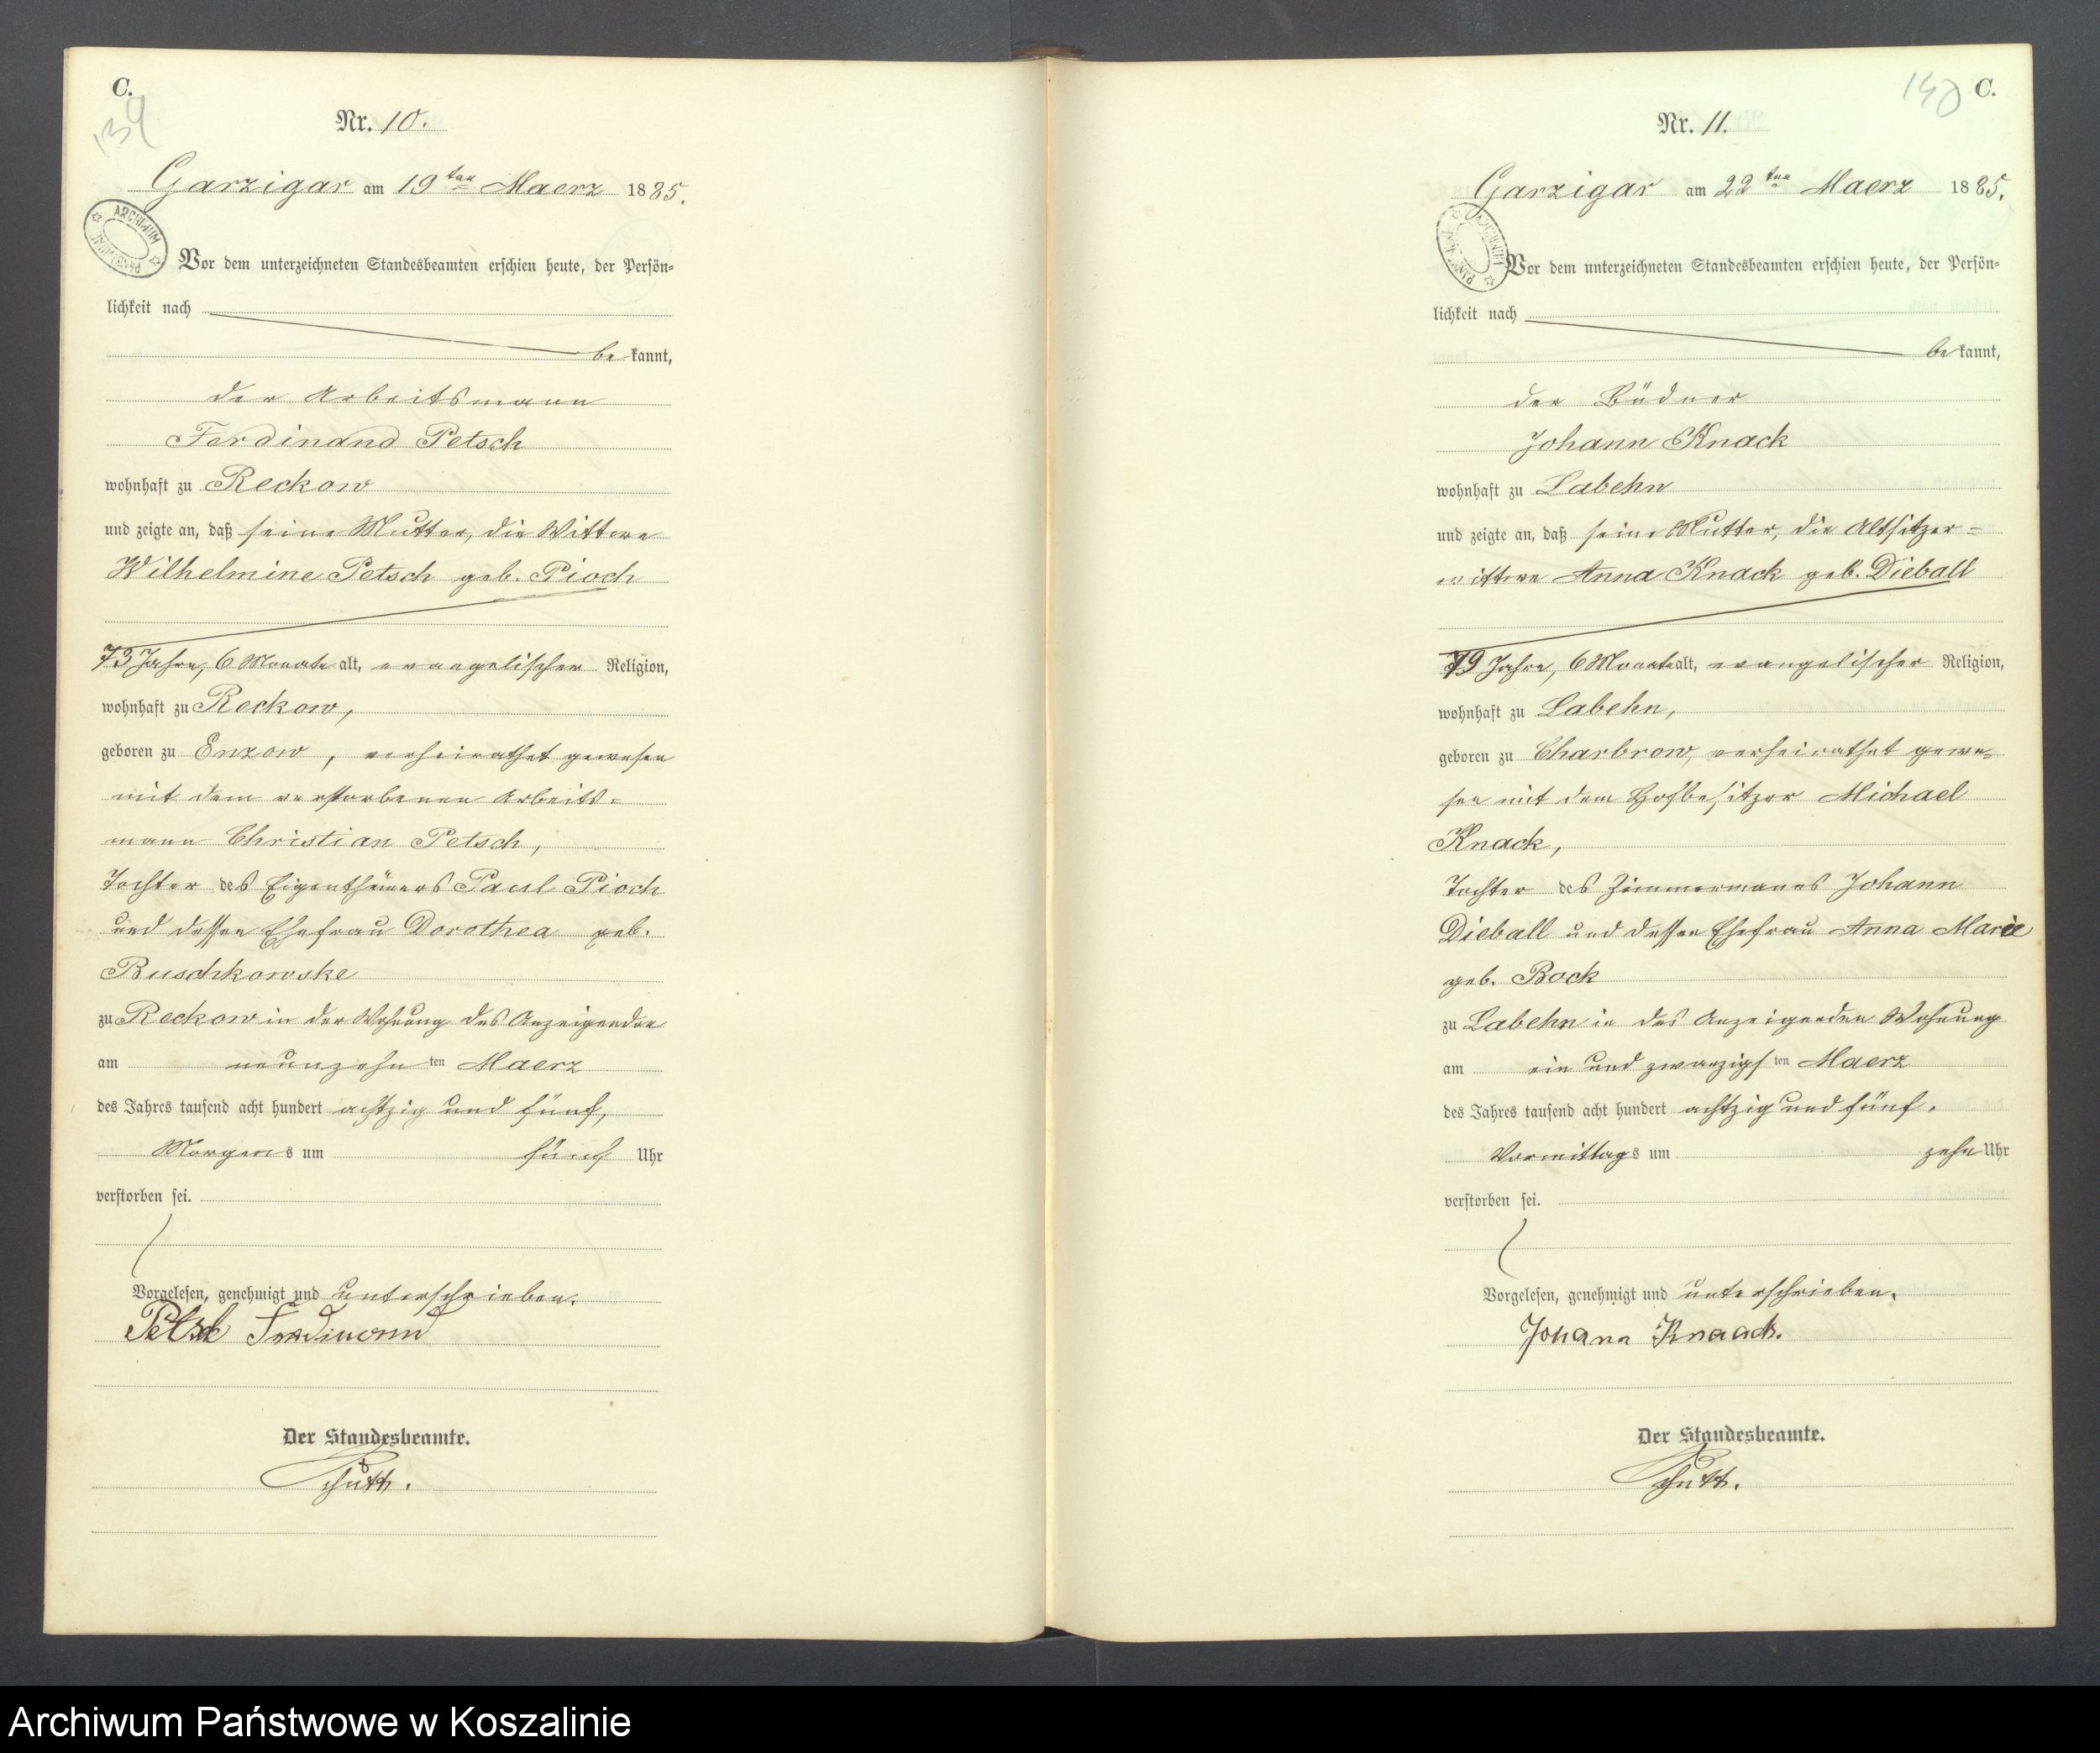 C.
139
Nr. 10.
Garzigar am 19ten Maerz 1885.
ARCHIWUM
Vor dem unterzeichneten Standesbeamten erschien heute, der Persön=
lichkeit nach
bekannt,
der Arbeitsmann
Ferdinand Petsch
wohnhaft zu Reckow
und zeigte an, daß seine Mutter, die Wittwe
Wilhelmine Petsch geb. Pioch
73 Jahre, 6 Monate alt, evangelischer Religion,
wohnhaft zu Reckow,
geboren zu Enzow, verheirathet gewesen
mit dem verstorbenen Arbeits=
mann Christian Petsch,
Tochter des Eigenthümers Paul Pioch
und dessen Ehefrau Dorothea geb.
Buschkowske
zu Reckow in der Wohnung des Anzeigenden
am neunzehnten Maerz
des Jahres tausend acht hundert achtzig und fünf,
Morgens um fünf Uhr
verstorben sei.
Vorgelesen, genehmigt und unterschrieben.
Petsch Ferdinand
Der Standesbeamte.
Schütt.
140
C.
Nr. 11.
Garzigar am 22ten Maerz 1885.
Vor dem unterzeichneten Standesbeamten erschien heute, der Persön=
lichkeit nach
bekannt,
der Büdner
Johann Knack
wohnhaft zu Labehn
und zeigte an, daß seine Mutter, die Altsitzer=
wittwe Anna Knack geb. Dieball
79 Jahre, 6 Monate alt, evangelischer Religion,
wohnhaft zu Labehn,
geboren zu Charbrow, verheirathet gewe=
sen mit dem Hofbesitzer Michael
Knack,
Tochter des Zimmermanns Johann
Dieball und dessen Ehefrau Anna Marie
geb. Bock
zu Labehn in des Anzeigenden Wohnung
am ein und zwanzigsten Maerz
des Jahres tausend acht hundert achtzig und fünf,
Vormittags um zehn Uhr
verstorben sei.
Vorgelesen, genehmigt und unterschrieben.
Johann Knaack.
Der Standesbeamte.
Schütt.
Archiwum Państwowe w Koszalinie